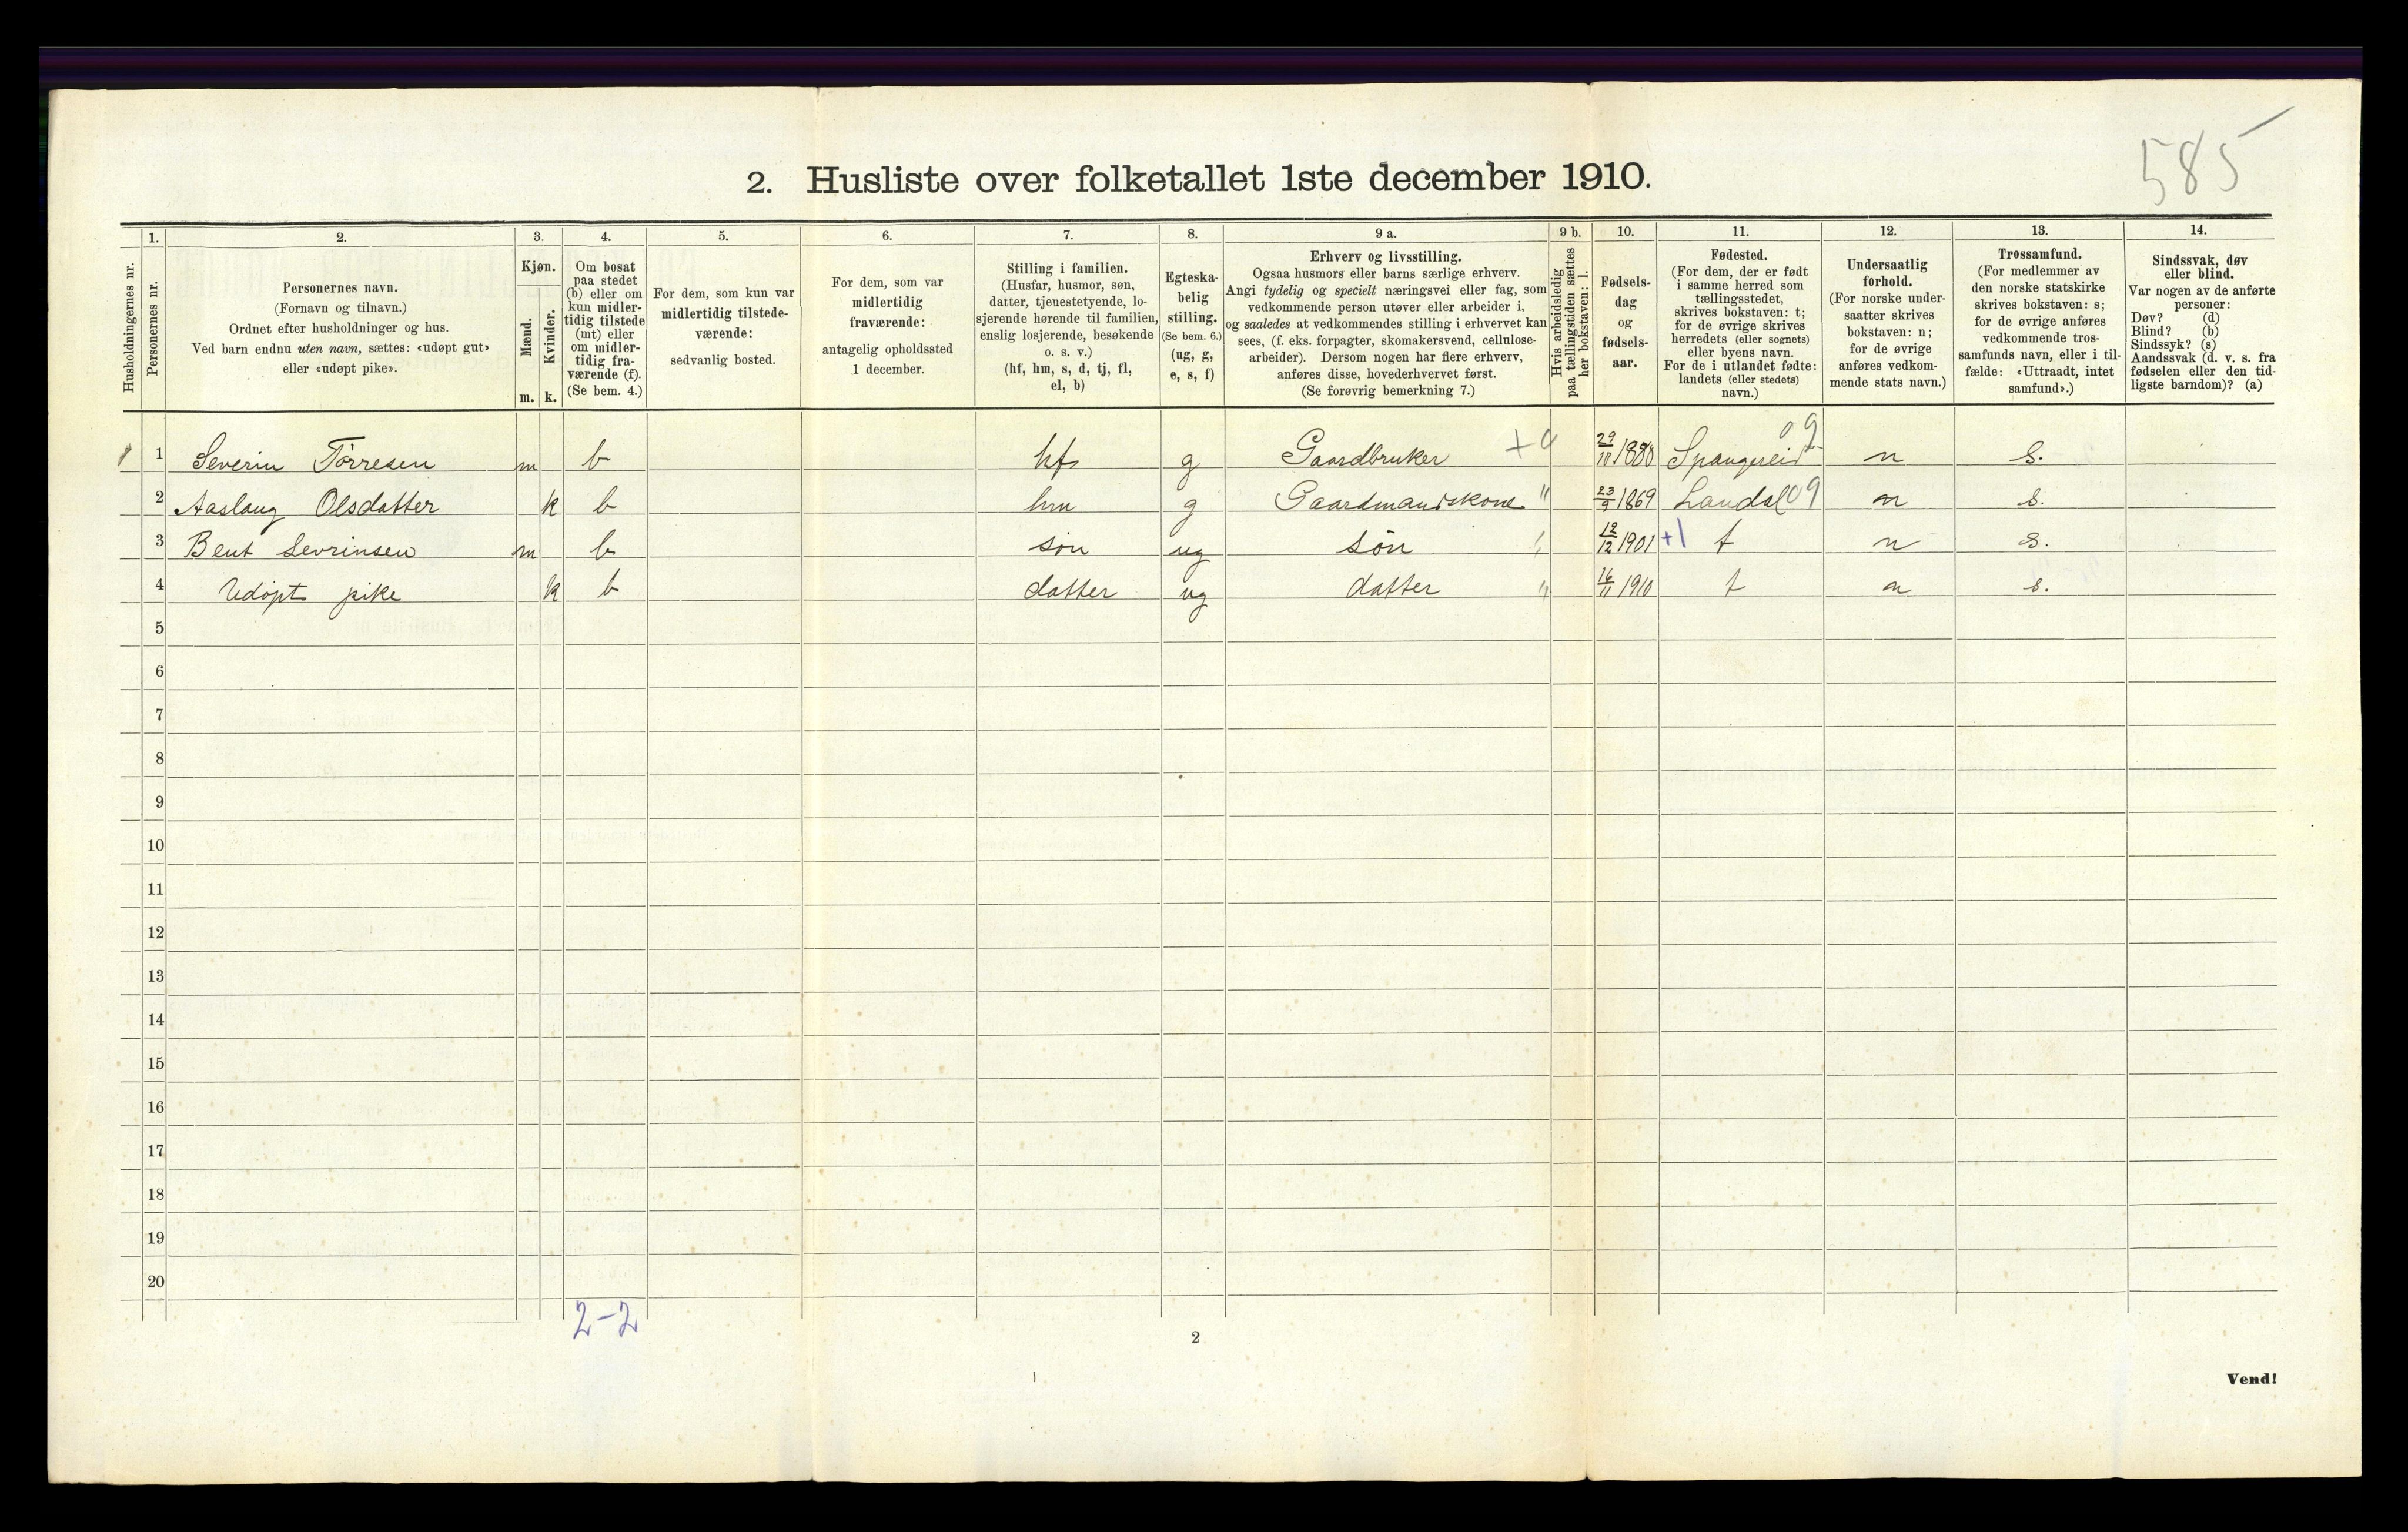 585
2. Husliste over folketallet 1ste december 1910.
Husholdningernes nr.
1. Personernes nr.
2. Personernes navn.
(Fornavn og tilnavn.)
Ordnet efter husholdninger og hus.
Ved barn endnu uten navn, sættes: «udøpt gut»
eller «udøpt pike».
3. Kjøn.
Mænd. Kvinder.
m. k.
4. Om bosat
paa stedet
(b) eller om
kun midler-
tidig tilstede
(mt) eller
om midler-
tidig fra-
værende (f).
(Se bem. 4.)
5. For dem, som kun var
midlertidig tilstede-
værende:
sedvanlig bosted.
6. For dem, som var
midlertidig
fraværende:
antagelig opholdssted
1 december.
7. Stilling i familien.
(Husfar, husmor, søn,
datter, tjenestetyende, lo-
sjerende hørende til familien,
enslig losjerende, besøkende
o. s. v.)
(hf, hm, s, d, tj, fl,
el, b)
8. Egteska-
belig
stilling.
(Se bem. 6.)
(ug, g,
e, s, f)
9 a. Erhverv og livsstilling.
Ogsaa husmors eller barns særlige erhverv.
Angi tydelig og specielt næringsvei eller fag, som
vedkommende person utøver eller arbeider i,
og saaledes at vedkommendes stilling i erhvervet kan
sees, (f. eks. forpagter, skomakersvend, cellulose-
arbeider). Dersom nogen har flere erhverv,
anføres disse, hovederhvervet først.
(Se forøvrig bemerkning 7.)
9 b. Hvis arbeidsledig
paa tællingstiden sættes
her bokstaven: l.
10. Fødsels-
dag
og
fødsels-
aar.
11. Fødested.
(For dem, der er født
i samme herred som
tællingsstedet,
skrives bokstaven: t;
for de øvrige skrives
herredets (eller sognets)
eller byens navn.
For de i utlandet fødte:
landets (eller stedets)
navn.)
12. Undersaatlig
forhold.
(For norske under-
saatter skrives
bokstaven: n;
for de øvrige
anføres vedkom-
mende stats navn.)
13. Trossamfund.
(For medlemmer av
den norske statskirke
skrives bokstaven: s;
for de øvrige anføres
vedkommende tros-
samfunds navn, eller i til-
fælde: «Uttraadt, intet
samfund».)
14. Sindssvak, døv
eller blind.
Var nogen av de anførte
personer:
Døv? (d)
Blind? (b)
Sindssyk? (s)
Aandssvak (d. v. s. fra
fødselen eller den tid-
ligste barndom)? (a)
1 1 Severin Tørresen m b hf g Gaardbruker 29/10 1880 Spangereid 09 n s.
2 Aaslaug Olsdatter k b hm g Gaardmandskone " 23/9 1869 Landsl 09 n s.
3 Bent Sevrinsen m b søn ug søn " 12/12 1901 +1 t n s.
4 Udøpt pike k b datter ug datter " 16/11 1910 t n s.
5
6
7
8
9
10
11
12
13
14
15
16
17
18
19
20
2-2
2
Vend!